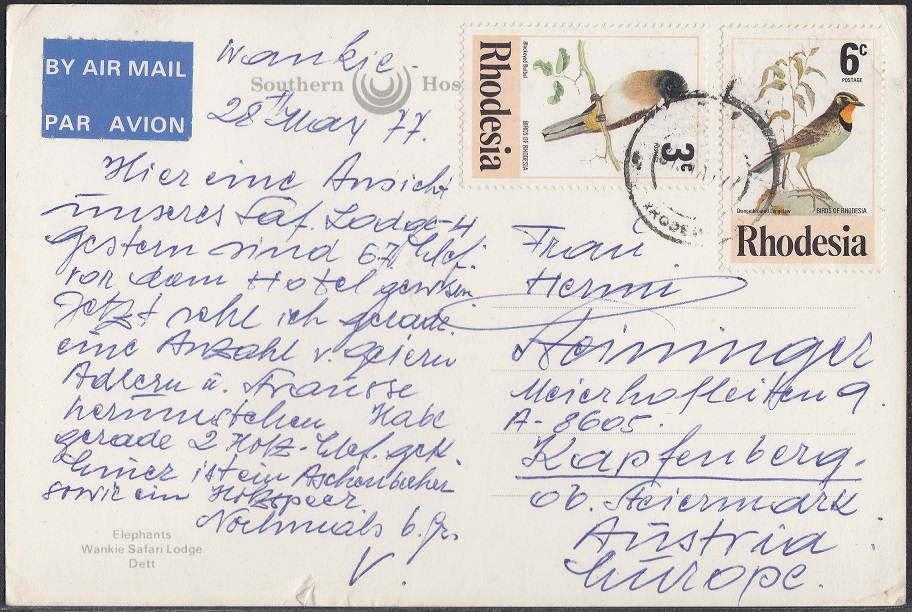 BY AIR MAIL
PAR AVION
Wankie.
Southern
Hos
28th May 77.
Hier eine Ansicht
unseres Saf. Lodge-4
gestern sind 67 Elef.
vor dem Hotel gewesen
Jetzt sehe ich gerade
eine Anzahl v. Geiern
Adlern u. Strausse
herumstehen Habe
gerade 2 Holz-Elef. gek.
Einer ist ein Aschenbecher
sowie ein Holzspeer.
Nochmals b. Gr.
V.
Elephants
Wankie Safari Lodge
Dett
Rhodesia
Blackeyed Bulbul
BIRDS OF RHODESIA
3c
6c
POSTAGE
Orangethroated Longclaw
BIRDS OF RHODESIA
Rhodesia
Frau
Hermi
Steininger
Meierhofleiten 9.
A-8605.
Kapfenberg.
Ob. Steiermark
Austria.
Europe.